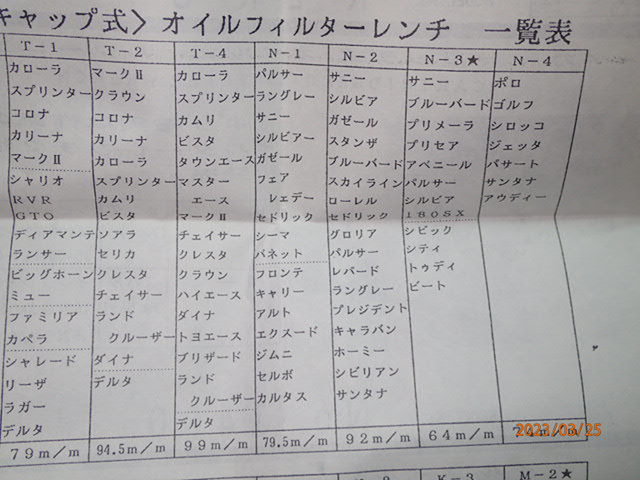 キャップ式〉オイルフィルターレンチ 一覧表
T-1 T-2 T-4 N-1 N-2 N-3★ N-4
カローラ マークⅡ カローラ パルサー サニー サニー ポロ
スプリンター クラウン スプリンター ラングレー シルビア ブルーバード ゴルフ
コロナ コロナ カムリ サニー ガゼール プリメーラ シロッコ
カリーナ カリーナ ビスタ シルビアー スタンザ プリセア ジェッタ
マークⅡ カローラ タウンエース ガゼール ブルーバード アベニール パサート
シャリオ スプリンター マスター フェア スカイライン パルサー サンタナ
RVR カムリ エース レェデー ローレル シルビア アウディー
GTO ビスタ マークⅡ セドリック セドリック 180SX
ディアマンテ ソアラ チェイサー シーマ グロリア シビック
ランサー セリカ クレスタ バネット パルサー シティ
ビッグホーン クレスタ クラウン フロンテ レパード トゥディ
ミュー チェイサー ハイエース キャリー ラングレー ビート
ファミリア ランド ダイナ アルト プレジデント
カペラ クルーザー トヨエース エクスード キャラバン
シャレード ダイナ ブリザード ジムニ ホーミー
リーザ デルタ ランド セルボ シビリアン
ラガー クルーザー カルタス サンタナ
デルタ デルタ
79m/m 94.5m/m 99m/m 79.5m/m 92m/m 64m/m 74m/m
2023/03/25
K-3 M-2★